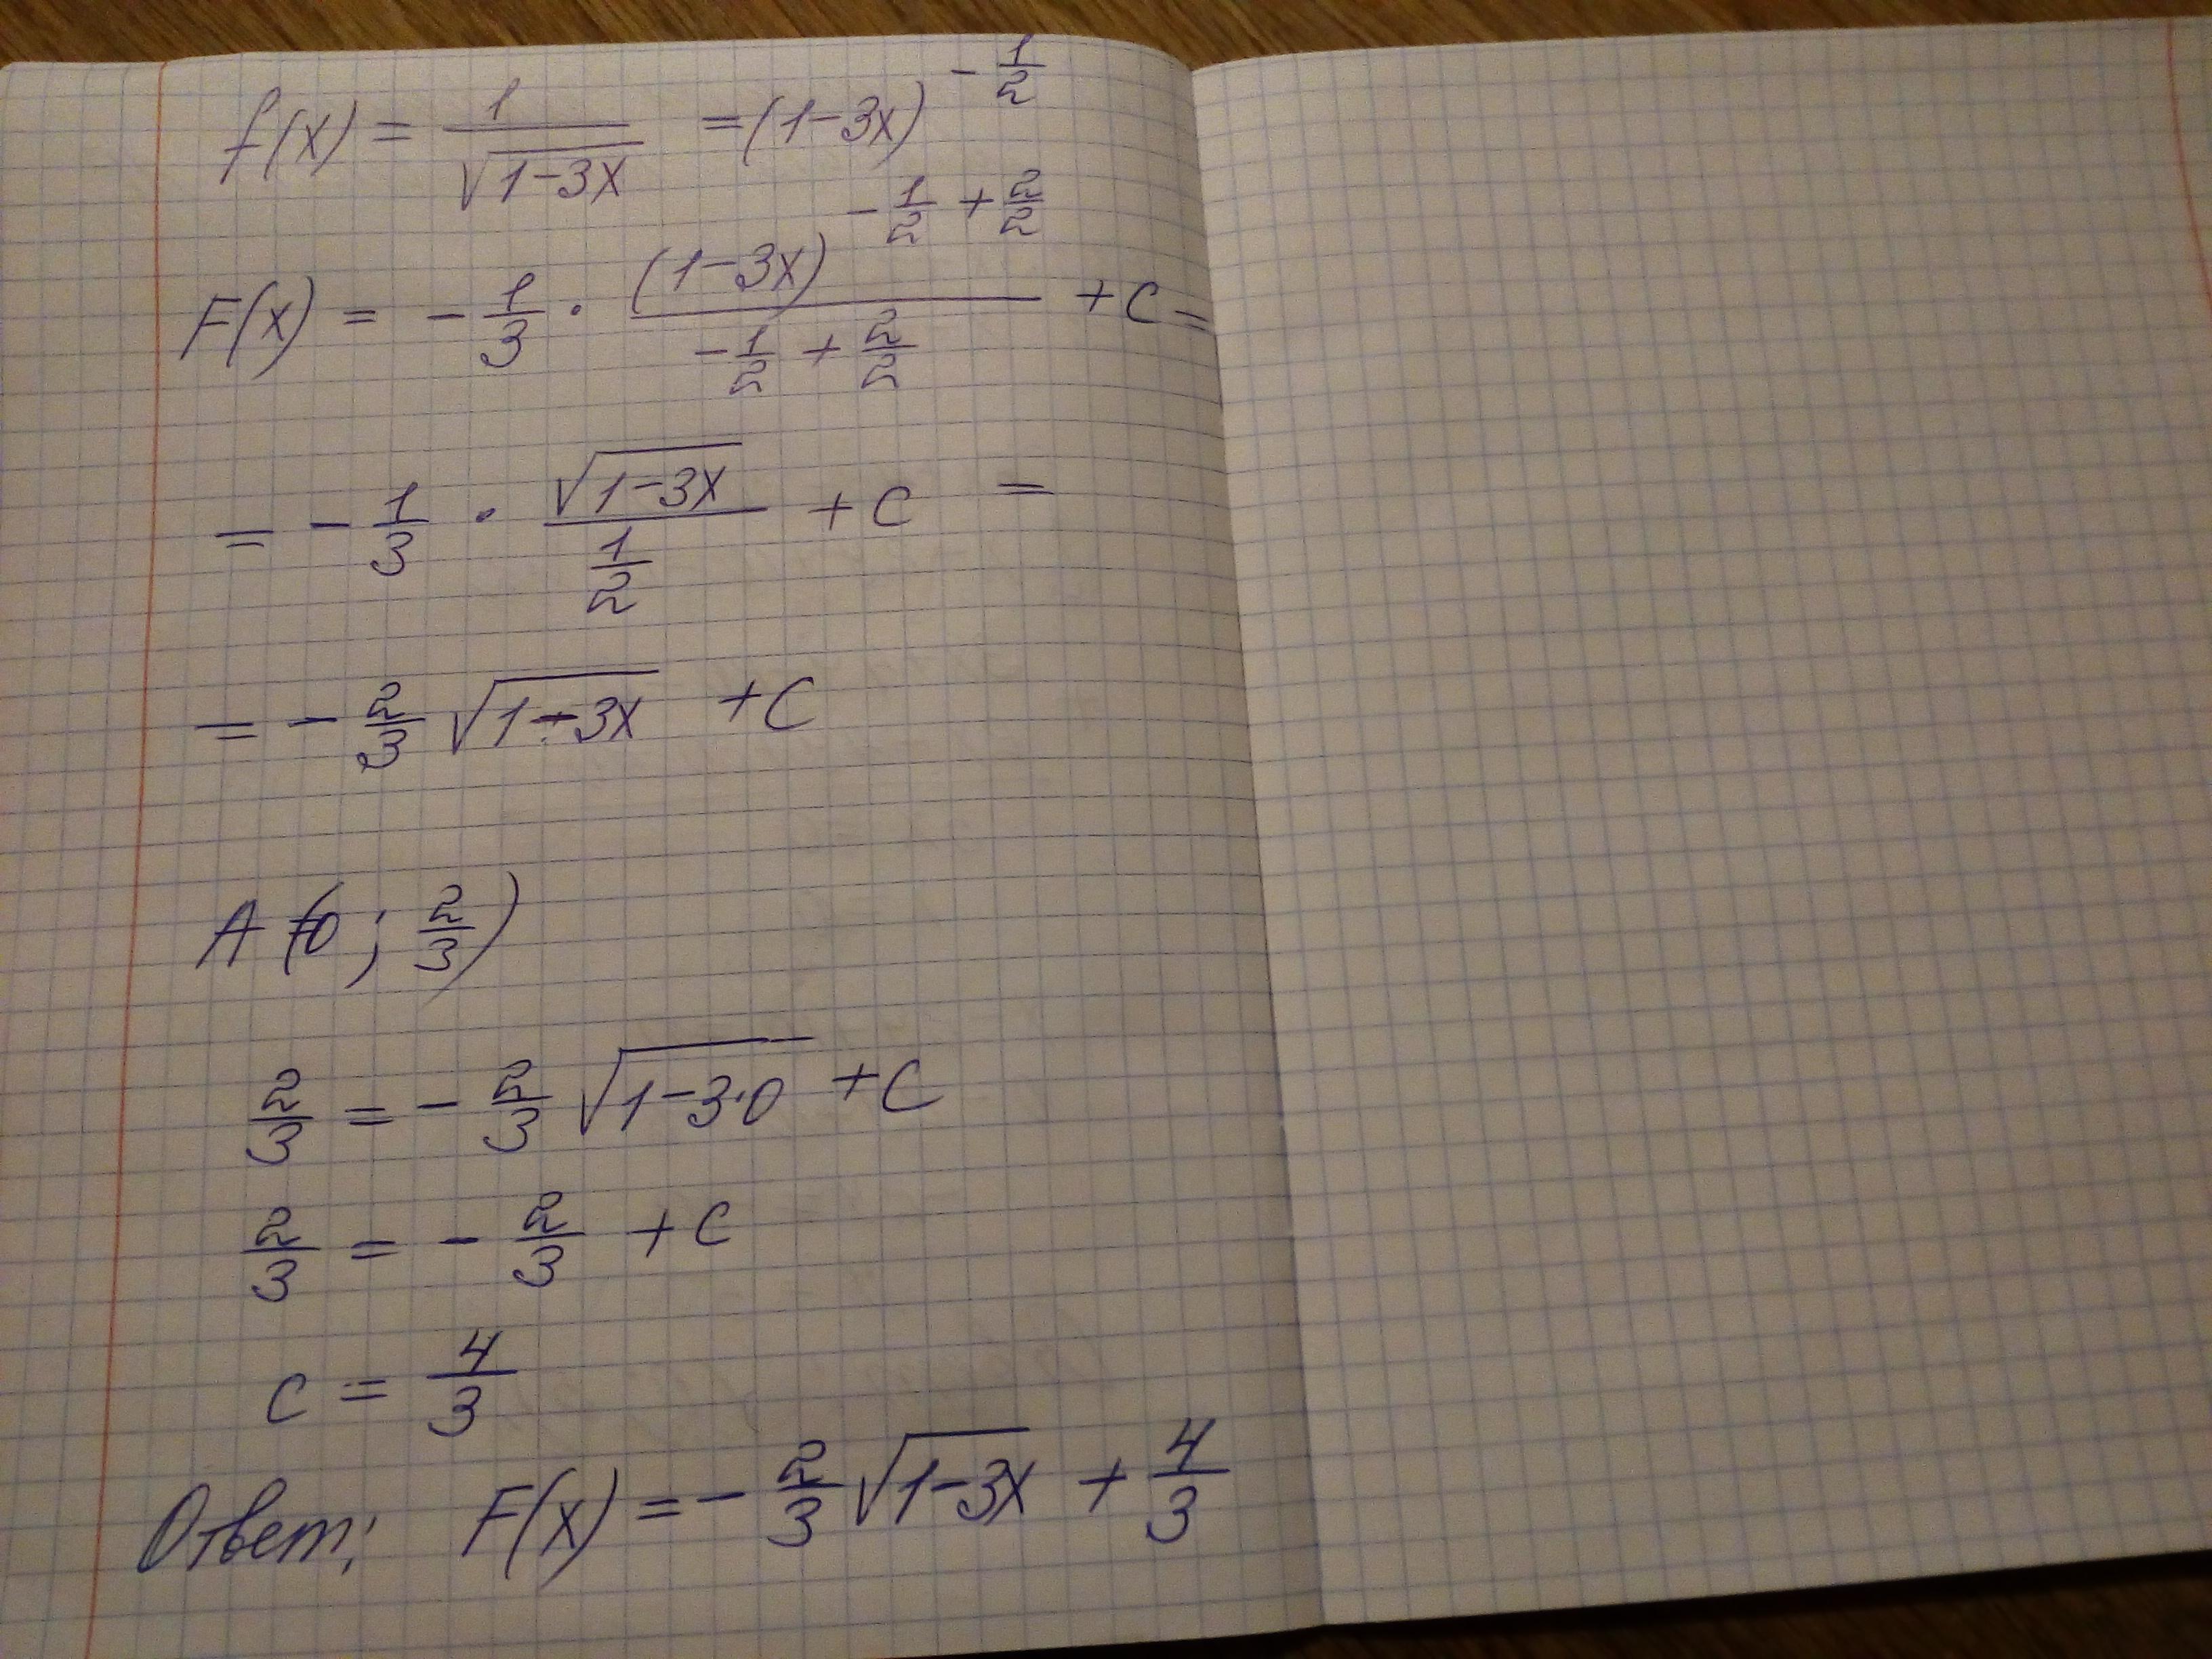 f(x) = 1/√(1-3x) = (1-3x)^(-1/2)
F(x) = -1/3 · (1-3x)^(-1/2 + 2/2)/(-1/2 + 2/2) + C =
= -1/3 · √(1-3x)/(1/2) + C =
= -2/3 √(1-3x) + C
A(0; 2/3)
2/3 = -2/3 √(1-3·0) + C
2/3 = -2/3 + C
C = 4/3
Ответ: F(x) = -2/3 √(1-3x) + 4/3